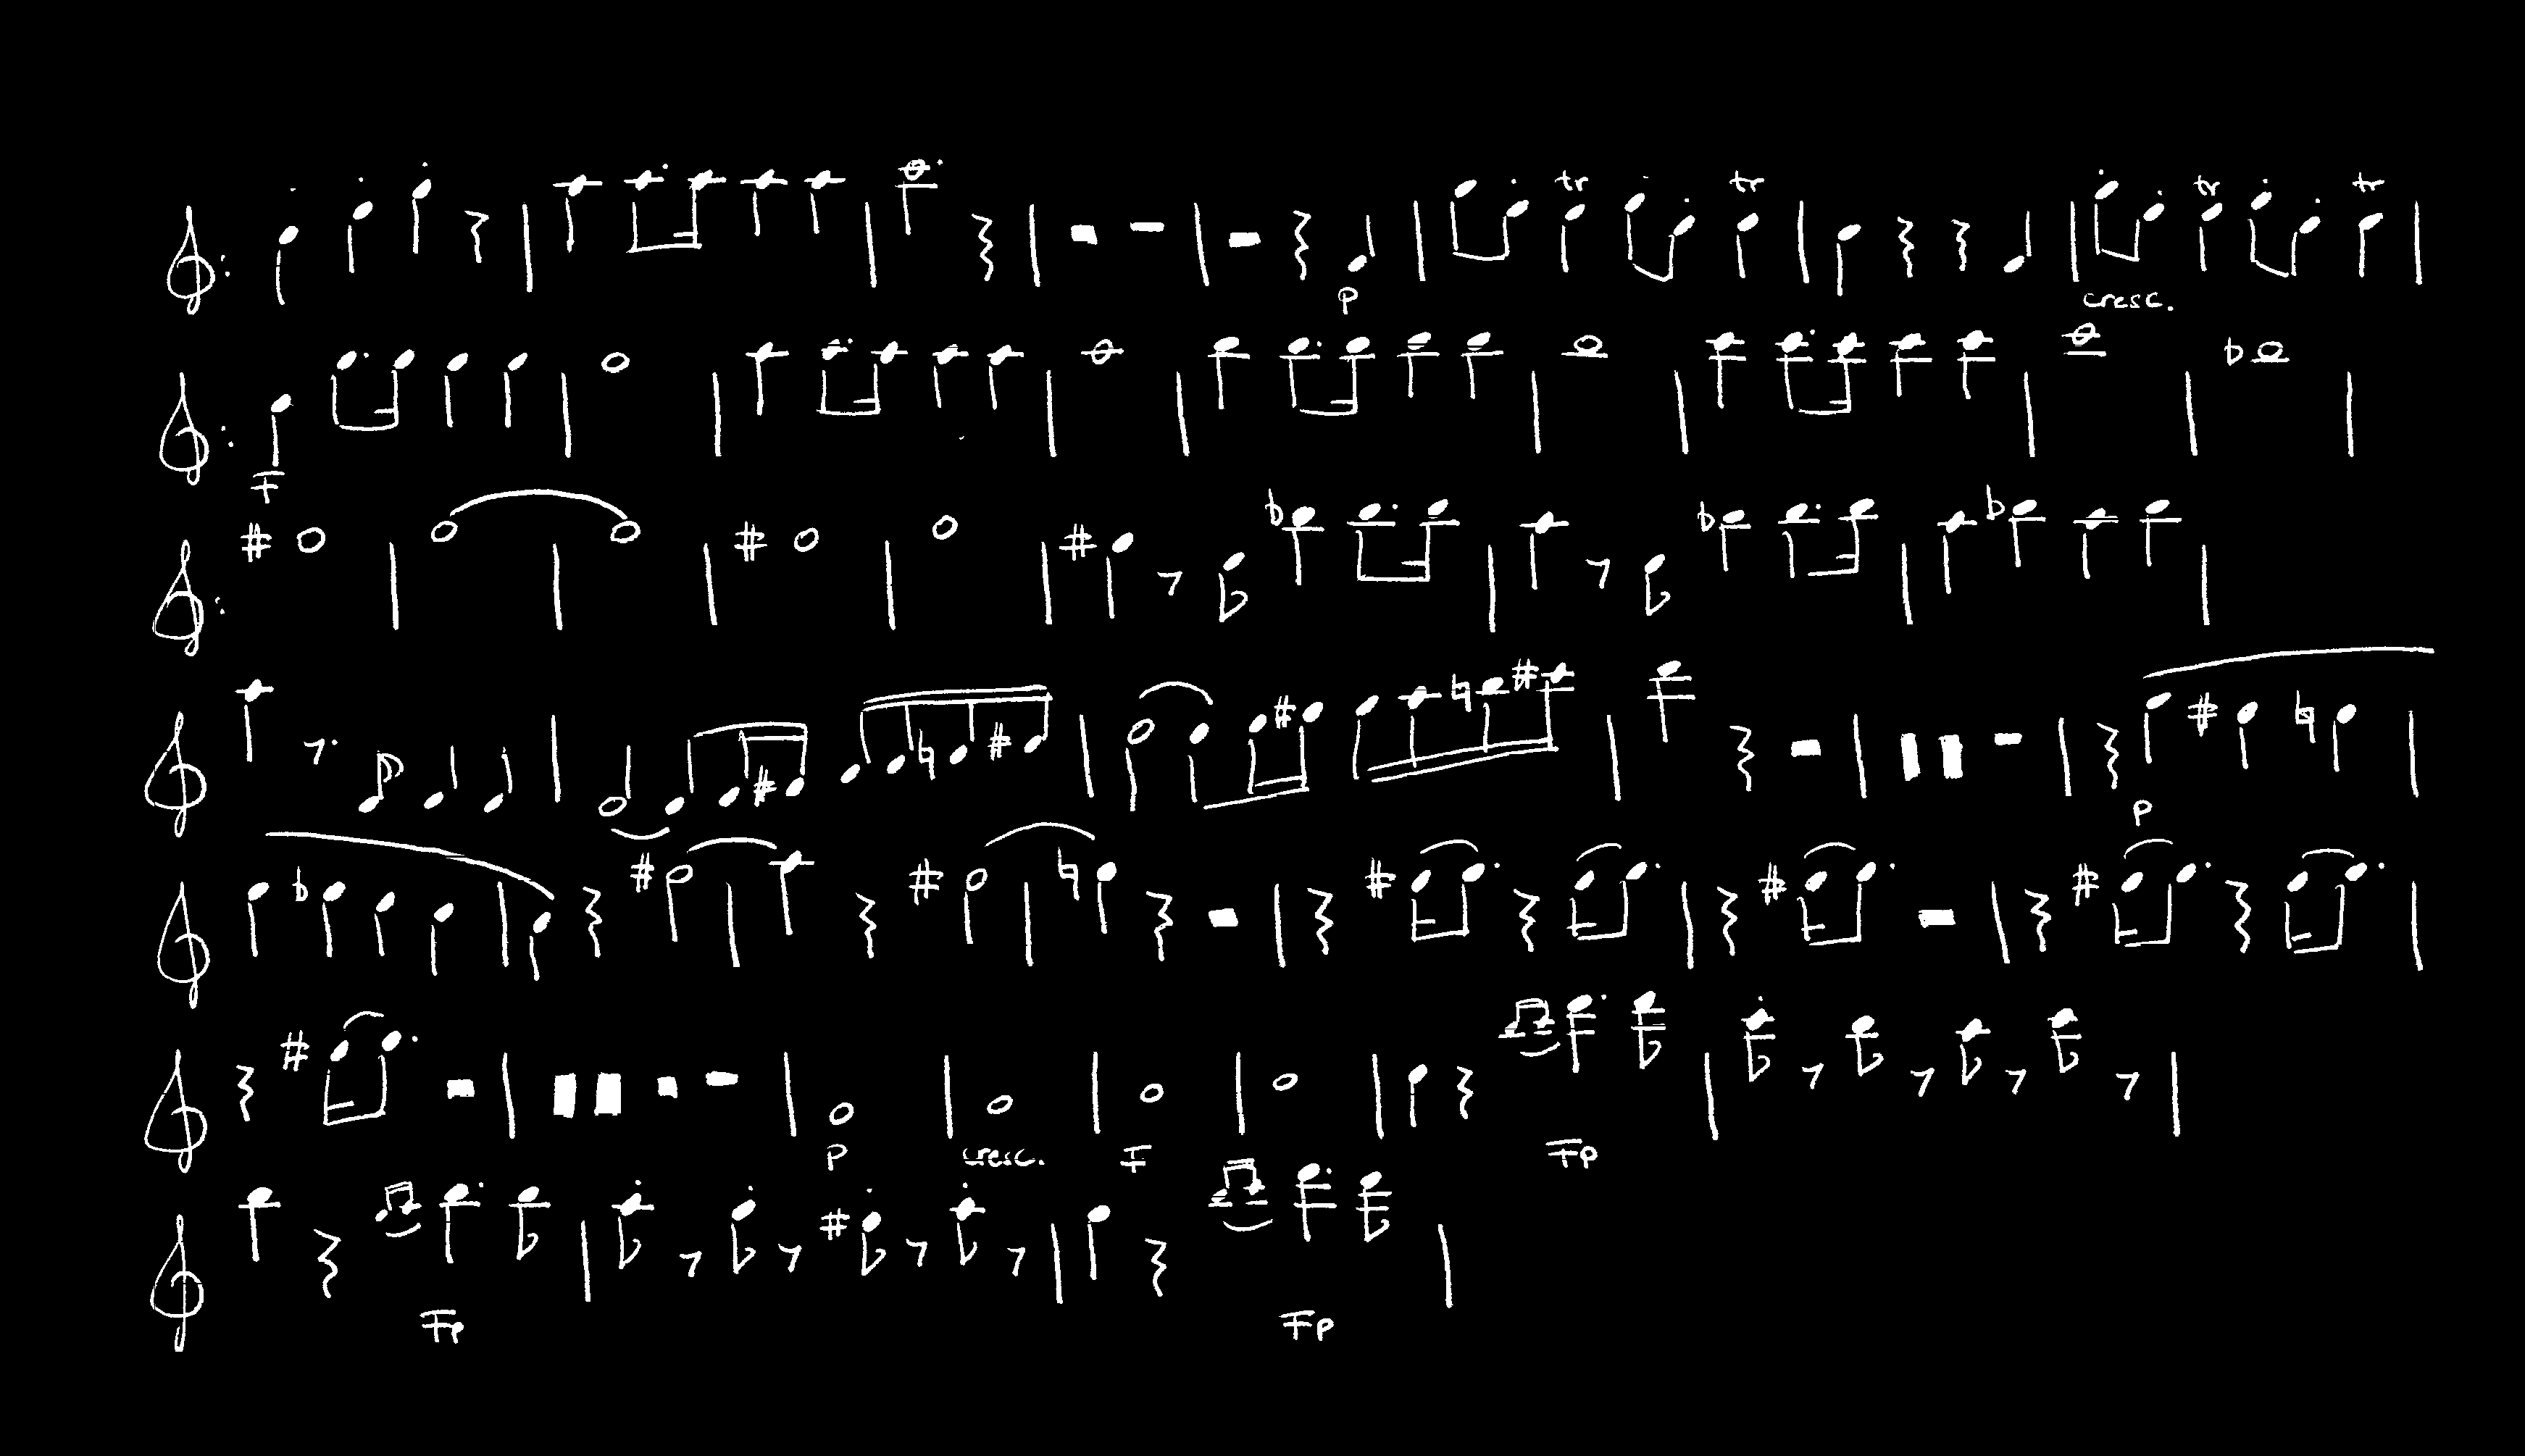 tr tr tr tr
p cresc.
F
p
p cresc. F Fp
Fp Fp